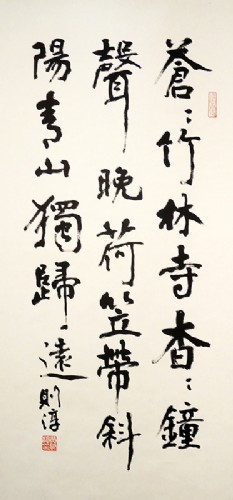 蒼〻竹林寺杳〻鐘
聲晚荷笠帶斜
陽青山獨歸遠則淳